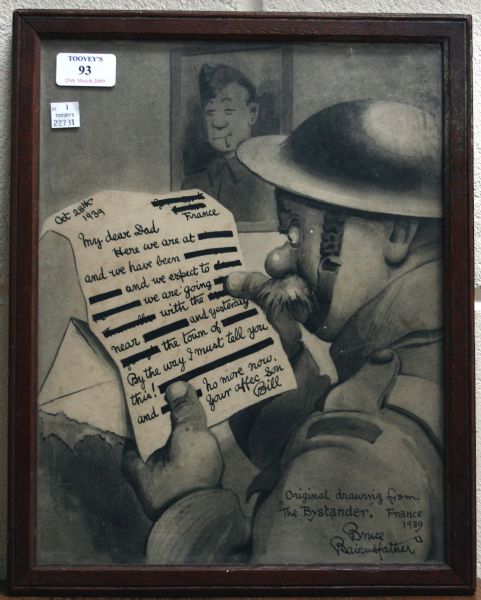 TOOVEY'S
93
25th March 2009
1
TOOVEY'S
22731
Oct 28th
1939
France
My dear Dad
Here we are at
and we have been
and we expect to
we are going
with the
near and yesterday
the town of
By the way I must tell you
this!
and no more now.
Your affec Son
Bill
Original drawing from
"The Bystander," France
1939
Bruce
Bairnsfather